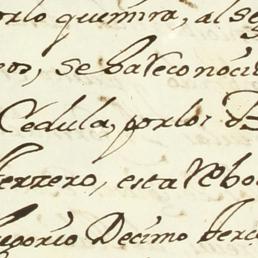 orlo quemira, al se
os, se ha reconoci
Cedula, por los
errero, esta Rebo
egorio Decimo terc